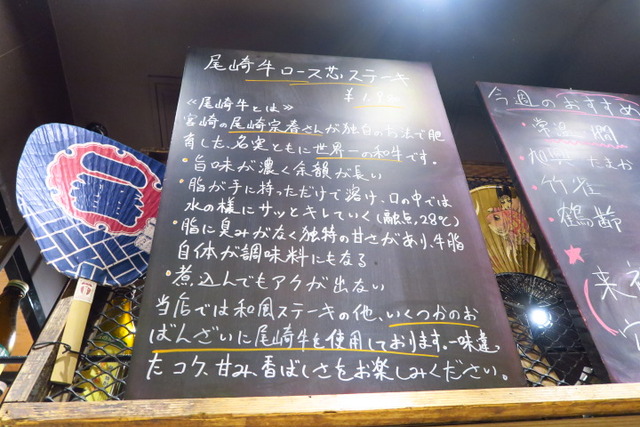 尾崎牛ロース芯ステーキ
≪尾崎牛とは≫
宮崎の尾崎宗春さんが独自の方法で肥
育した、名実ともに世界一の和牛です。
・旨味が濃く余韻が長い
・脂が手に持っただけで溶け、口の中では
水の様にサッとキレていく(融点、28℃)
・脂に臭みがなく独特の甘さがあり、牛脂
自体が調味料にもなる
・煮込んでもアクが出ない
当店では和風ステーキの他、いくつかのお
ばんざいに尾崎牛を使用しております。一味違っ
たコク、甘み、香ばしさをお楽しみください。
今週のおすすめ
・常温・燗
・竹雀
・鶴齢